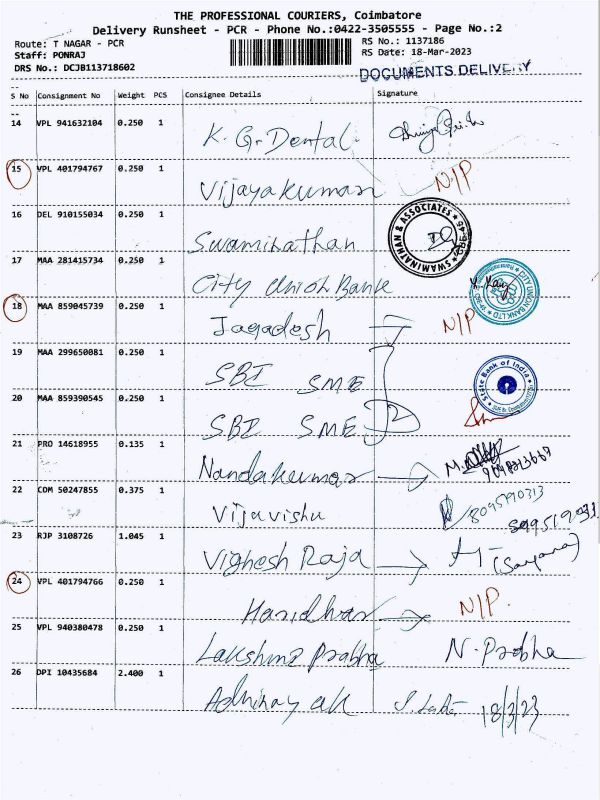 THE PROFESSIONAL COURIERS, Coimbatore
Delivery Runsheet - PCR - Phone No.:0422-3505555 - Page No.:2
Route: T NAGAR - PCR
RS No.: 1137186
Staff: PONRAJ
RS Date: 18-Mar-2023
DRS No.: DCJB113718602
DOCUMENTS DELIVERY
S No Consignment No Weight PCS Consignee Details Signature
14 VPL 941632104 0.250 1 K. G. Dental
15 VPL 401794767 0.250 1 Vijayakumar N/P
16 DEL 910155034 0.250 1 Swaminathan
SWAMINATHAN & ASSOCIATES
17 MAA 281415734 0.250 1 City Union Bank
CITY UNION BANK LTD
18 MAA 859045739 0.250 1 Jagadesh N/P
19 MAA 299650081 0.250 1 SBI SME
State Bank of India
20 MAA 859390545 0.250 1 SBI SME
21 PRO 14618955 0.135 1 Nandakumar
22 COM 50247855 0.375 1 Vijavishu
23 RJP 3108726 1.045 1 Vighesh Raja
24 VPL 401794766 0.250 1 Haridhar N/P.
25 VPL 940380478 0.250 1 Lakshmi Prabha N. Prabha
26 DPI 10435684 2.400 1 18/3/23